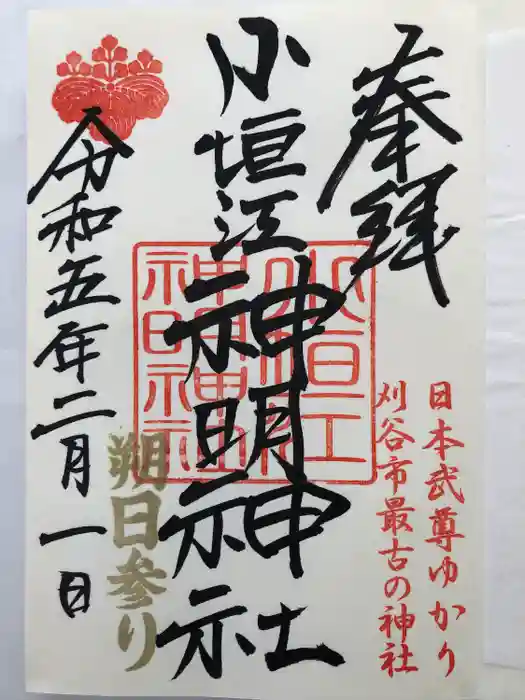 奉拝
日本武尊ゆかり
刈谷市最古の神社
小垣江神明神社
朔日参り
令和五年二月一日